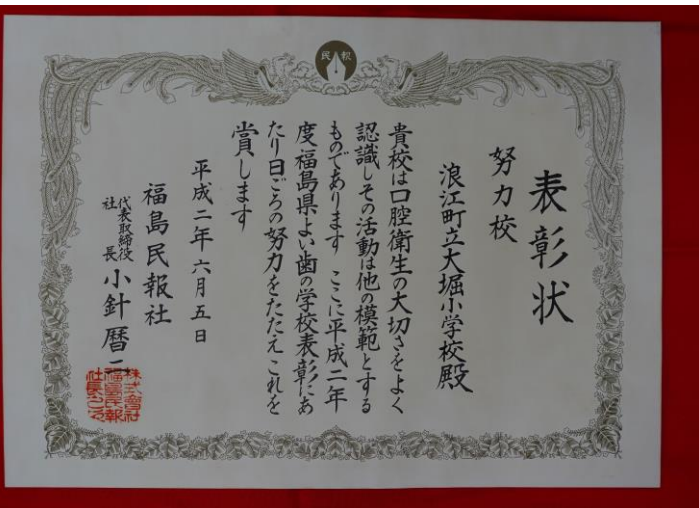 民報
表彰状
努力校
浪江町立大堀小学校殿
貴校は口腔衛生の大切さをよく
認識しその活動は他の模範とする
ものであります ここに平成二年
度福島県よい歯の学校表彰にあ
たり日ごろの努力をたたえこれを
賞します
平成二年六月五日
福島民報社
代表取締役
社長 小針暦二
株式会社
福島民報
社長之印